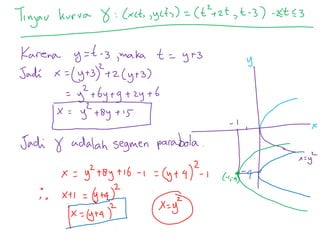 Tinjau kurva γ : (x(t), y(t)) = (t² + 2t, t - 3) -2 ≤ t ≤ 3
Karena y = t - 3, maka t = y + 3
Jadi x = (y+3)² + 2(y+3)
= y² + 6y + 9 + 2y + 6
x = y² + 8y + 15
Jadi γ adalah segmen parabola.
x = y² + 8y + 16 - 1 = (y+4)² - 1
∴ x+1 = (y+4)²
x = (y+4)²
x = y²
y
-1
1
x
x = y²
(-1,-4)
-4